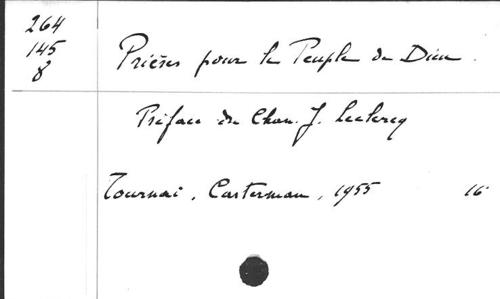 264
145
8
Prières pour le Peuple de Dieu.
Préface du Chan. J. Leclercq
Tournai, Casterman, 1955 16°